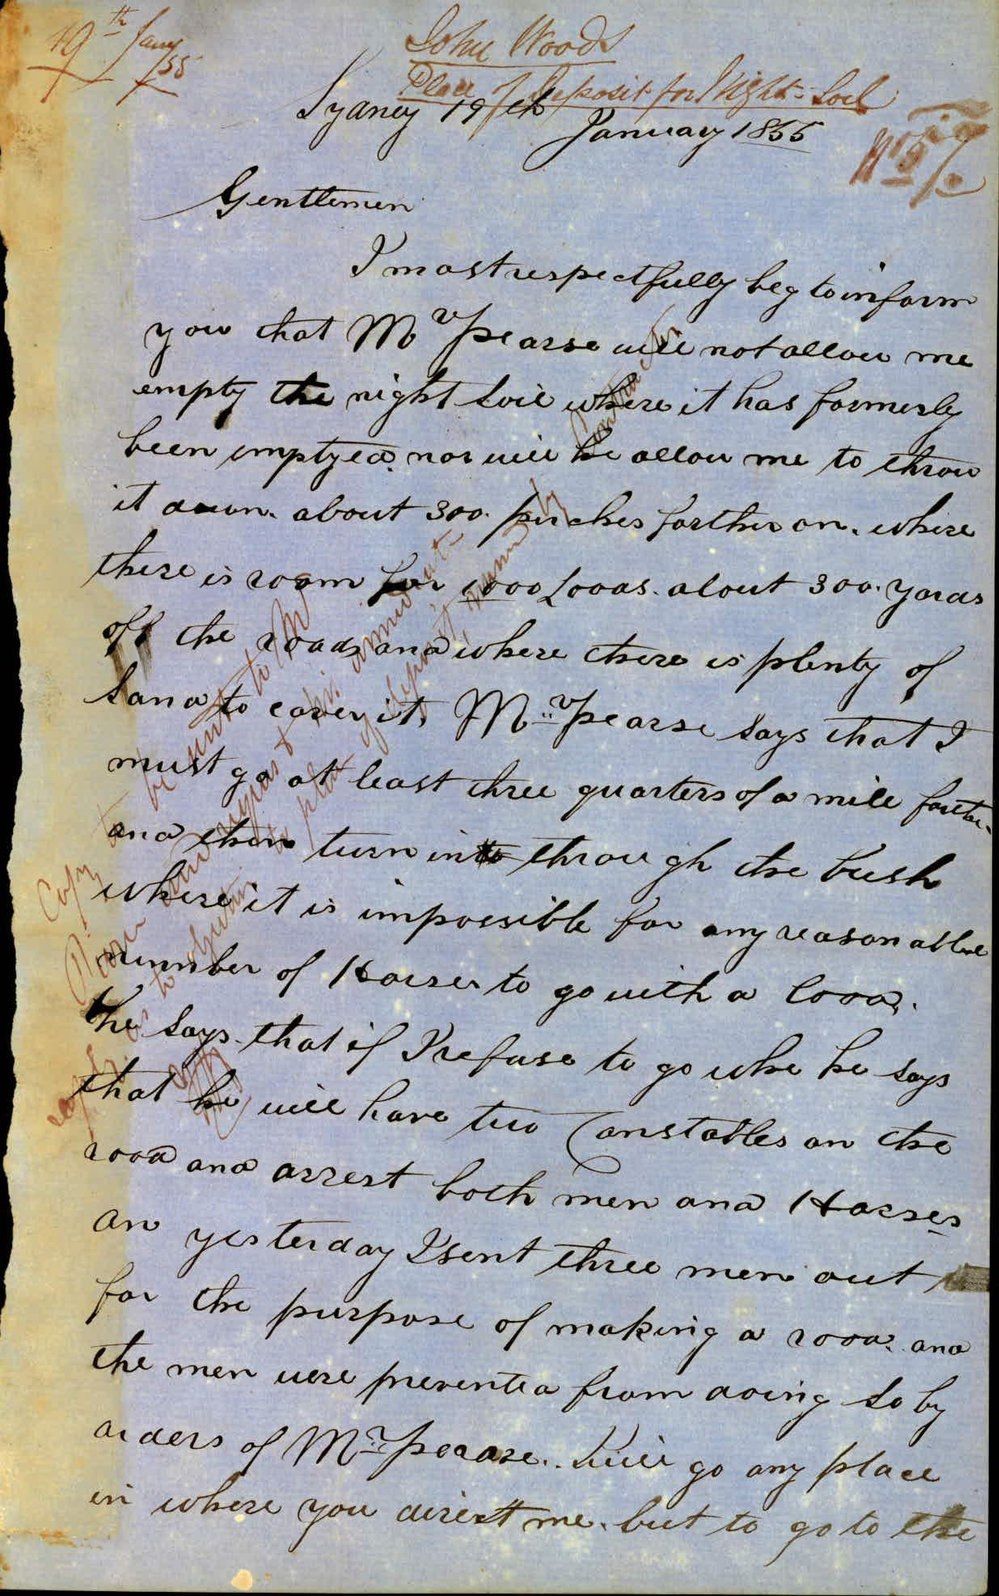 19th Jany /55
John Woods
Place of Deposit for Night-Soil
Sydney 19th
January 1855
Gentlemen
I most respectfully beg to inform
you that Mr Pearse will not allow me
empty the night soil where it has formerly
been emptyed. nor will he allow me to throw
it down. about 300. perches farther on. where
there is room for 1000 Loads. about 300. yards
off the road, and where there is plenty of
sand to cover it, Mr Pearse says that I
must go at least three quarters of a mile farther
and then turn into through the bush
where it is impossible for any reasonable
number of Horses to go with a load.
he says that if I refuse to go whe he says
that he will have two Constables on the
road and arrest both men and Horses
on yesterday I sent three men out
for the purpose of making a road. and
the men were prevented from doing so by
orders of Mr Pearse. I will go any place
in where you direct me. but to go to the
Copy to be sent to Mr
Pearse and request his immediate
to place of deposit named by Contractor